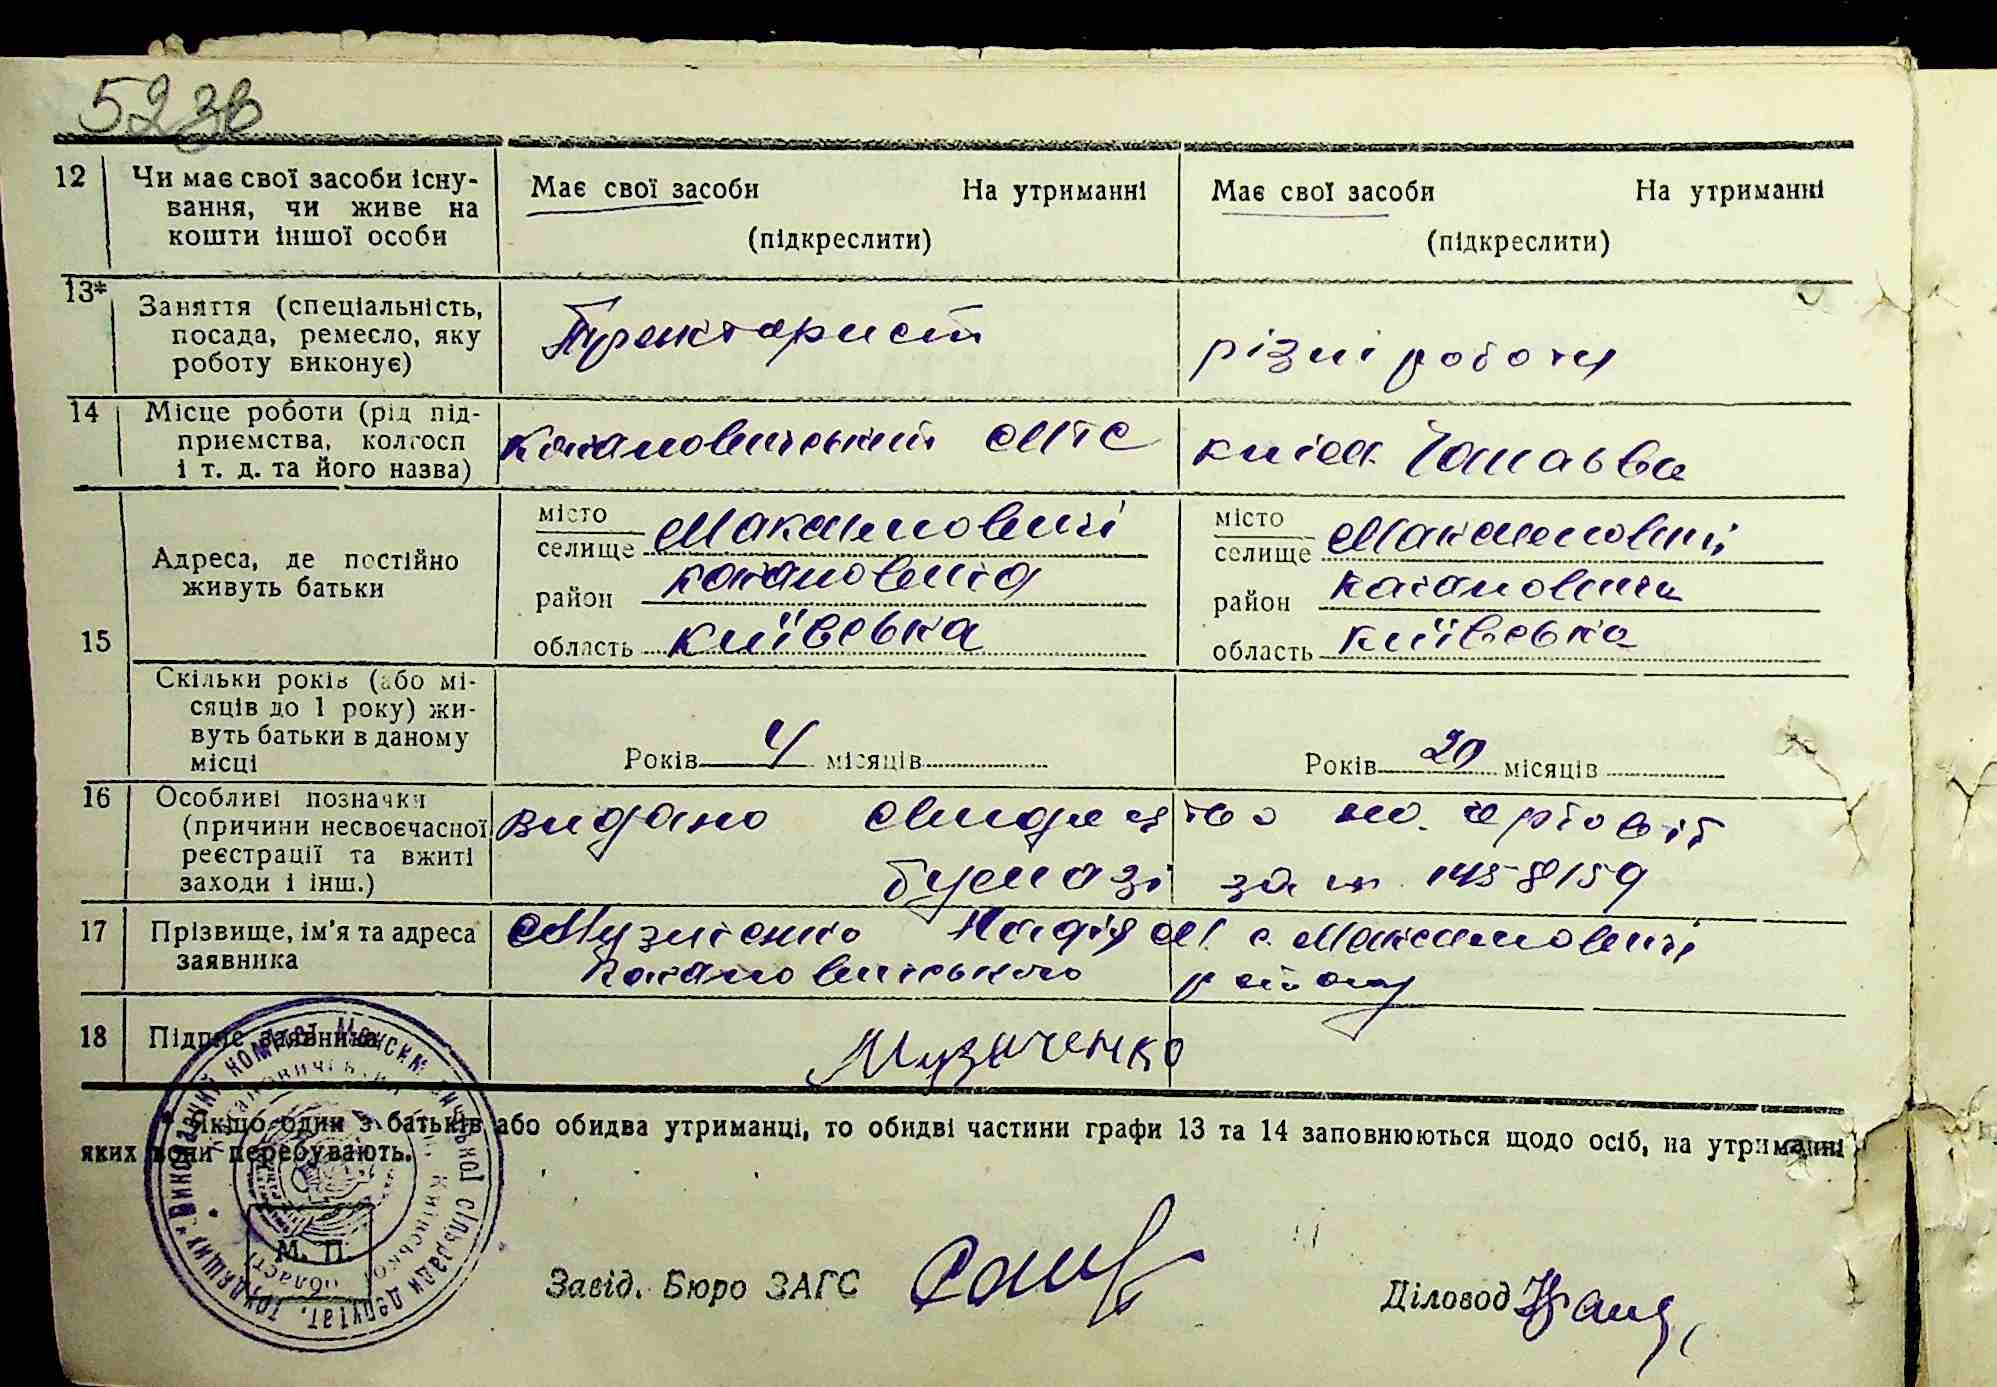 523в
12 Чи має свої засоби існу- Має свої засоби На утриманні Має свої засоби На утриманні
вання, чи живе на
кошти іншої особи (підкреслити) (підкреслити)
13* Заняття (спеціальність,
посада, ремесло, яку
роботу виконує) різні роботи
14 Місце роботи (рід під-
приємства, колгосп
і т. д. та його назва) Кагановичський МТС Чапаєва
15 Адреса, де постійно
живуть батьки
місто
селище Максимовичі
район Кагановича
область Київська
місто
селище Максимовичі
район Кагановича
область Київська
Скільки років (або мі-
сяців до 1 року) жи-
вуть батьки в даному
місці
Років 4 місяців Років 20 місяців
16 Особливі позначки
(причини несвоєчасної
реєстрації та вжиті
заходи і інш.)
видано свидецтво на гербовій
бумазі за №. 1458159
17 Прізвище, ім’я та адреса
заявника
Музиченко Надія М. с. Максимовичі
Кагановичського району
18 Підпис заявника Музиченко
* Якщо один з батьків або обидва утриманці, то обидві частини графи 13 та 14 заповнюються щодо осіб, на утриманні
яких вони перебувають.
Виконавчий комітет Максимовичської сільради депутат. трудящих
Кагановичський Київської області
М. П.
Завід. Бюро ЗАГС
Діловод